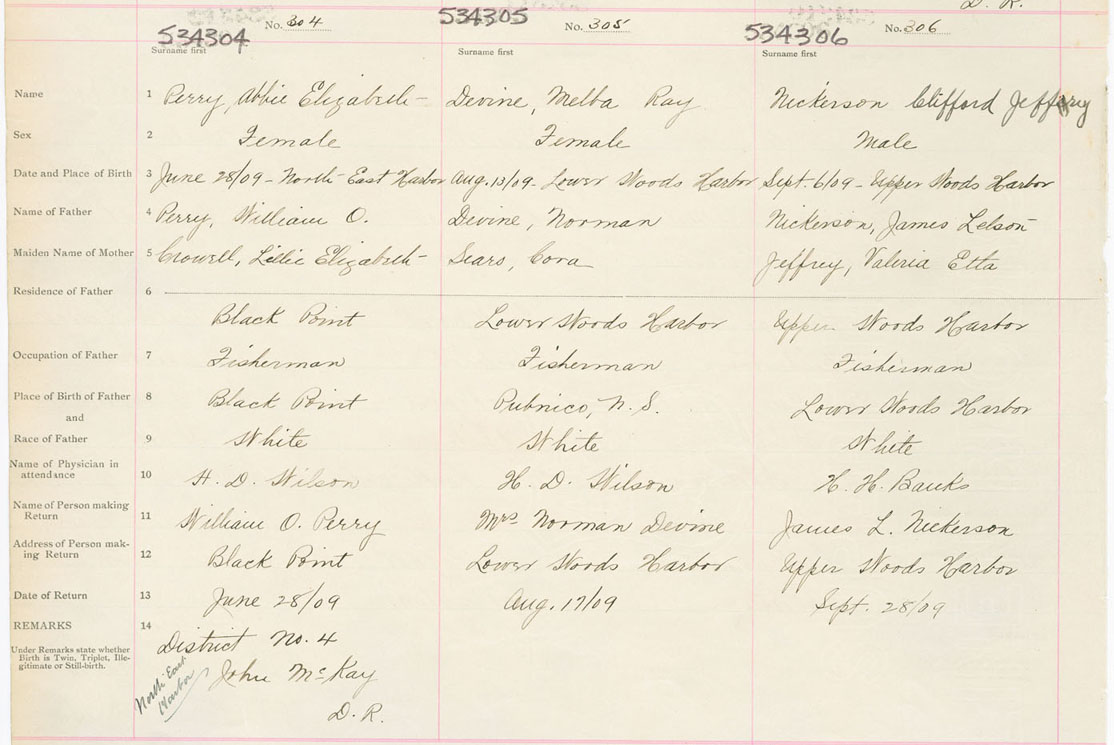 D. R.
534304 No. 304 534305 No. 305 534306 No. 306
Surname first Surname first Surname first
Name 1 Perry, Abbie Elizabeth Devine, Melba Ray Nickerson Clifford Jeffery
Sex 2 Female Female Male
Date and Place of Birth 3 June 28/09 - North East Harbor Aug. 13/09 - Lower Woods Harbor Sept. 6/09 - Upper Woods Harbor
Name of Father 4 Perry, William O. Devine, Norman Nickerson, James Lelson
Maiden Name of Mother 5 Crowell, Lillie Elizabeth Sears, Cora Jeffrey, Valeria Etta
Residence of Father 6
Black Point Lower Woods Harbor Upper Woods Harbor
Occupation of Father 7 Fisherman Fisherman Fisherman
Place of Birth of Father 8 Black Point Pubnico, N. S. Lower Woods Harbor
and
Race of Father 9 White White White
Name of Physician in
attendance 10 H. D. Wilson H. D. Wilson H. H. Banks
Name of Person making
Return 11 William O. Perry Mrs Norman Devine James L. Nickerson
Address of Person mak-
ing Return 12 Black Point Lower Woods Harbor Upper Woods Harbor
Date of Return 13 June 28/09 Aug. 17/09 Sept. 28/09
REMARKS 14
Under Remarks state whether
Birth is Twin, Triplet, Ille-
gitimate or Still-birth.
District No. 4
John McKay
D. R.
North East
Harbor